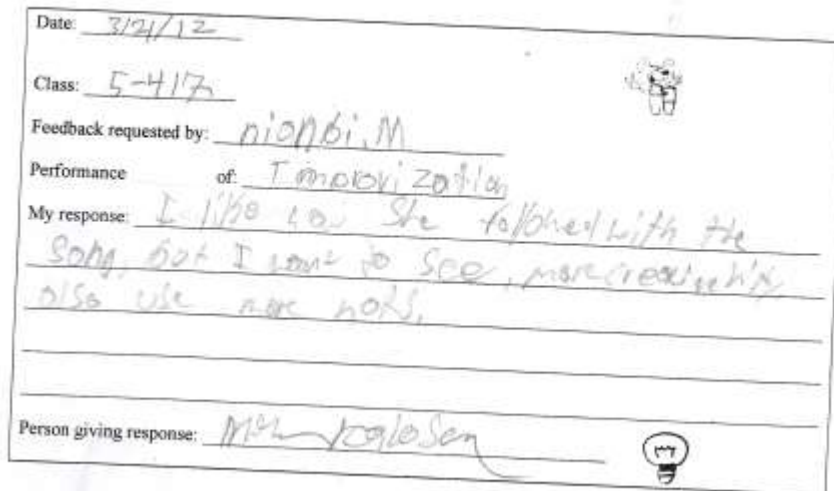 Date: 3/21/12
Class: 5-417
Feedback requested by: nionbi.M
Performance of: Improvization
My response: I like how She followed with the
Song, but I want to See, more creativity
also use more nots,
Person giving response: